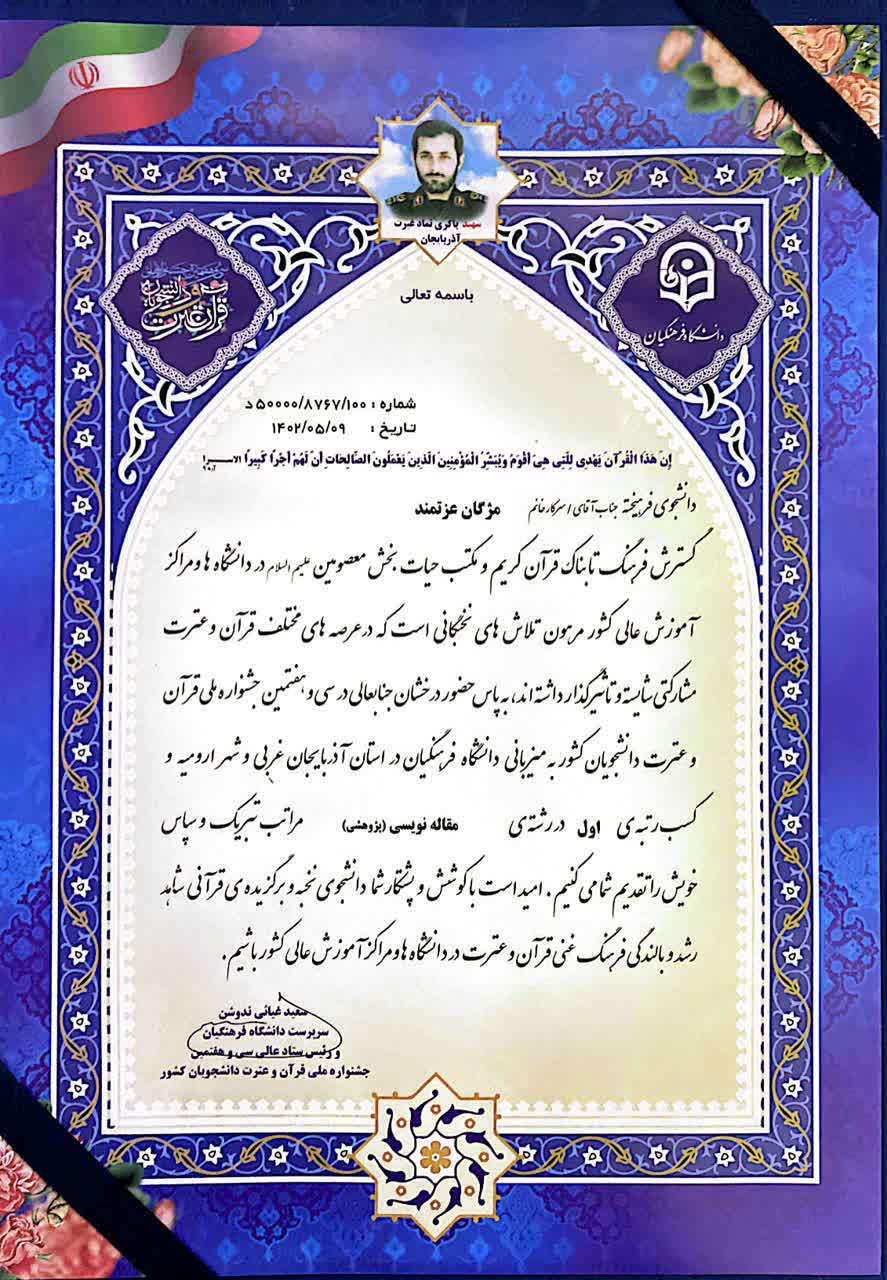 شهید باکری نماد غیرت
آذربایجان
دانشگاه فرهنگیان
قرآن و عترت
باسمه تعالی
شماره : ۵۰۰۰۰/۸۷۶۷/۱۰۰ د
تاریخ : ۱۴۰۲/۰۵/۰۹
إن هَذَا الْقُرآنَ یَهْدِی لِلَّتِی هِیَ أَقْوَمُ وَیُبَشِّرُ الْمُؤْمِنِینَ الَّذِینَ یَعْمَلُونَ الصَّالِحَاتِ أَنَّ لَهُمْ أَجْرًا کَبِیرًا
دانشجوی فرهیخته جناب آقای / سرکار خانم مژگان عزتمند
گسترش فرهنگ تابناک قرآن کریم و مکتب حیات بخش معصومین علیهم السلام در دانشگاه ها و مراکز
آموزش عالی کشور مرهون تلاش های نخبگانی است که در عرصه های مختلف قرآن و عترت
مشارکتی شایسته و تأثیرگذار داشته اند، به پاس حضور درخشان جنابعالی در سی و هفتمین جشنواره ملی قرآن
و عترت دانشجویان کشور به میزبانی دانشگاه فرهنگیان در استان آذربایجان غربی و شهر ارومیه و
کسب رتبه ی اول در رشته ی مقاله نویسی (پژوهشی) مراتب تبریک و سپاس
خویش را تقدیم شما می کنیم . امید است با کوشش و پشتکار شما دانشجوی نخبه و برگزیده ی قرآنی شاهد
رشد و بالندگی فرهنگ غنی قرآن و عترت در دانشگاه ها و مراکز آموزش عالی کشور باشیم .
سعید غیاثی ندوشن
سرپرست دانشگاه فرهنگیان
و رئیس ستاد عالی سی و هفتمین
جشنواره ملی قرآن و عترت دانشجویان کشور